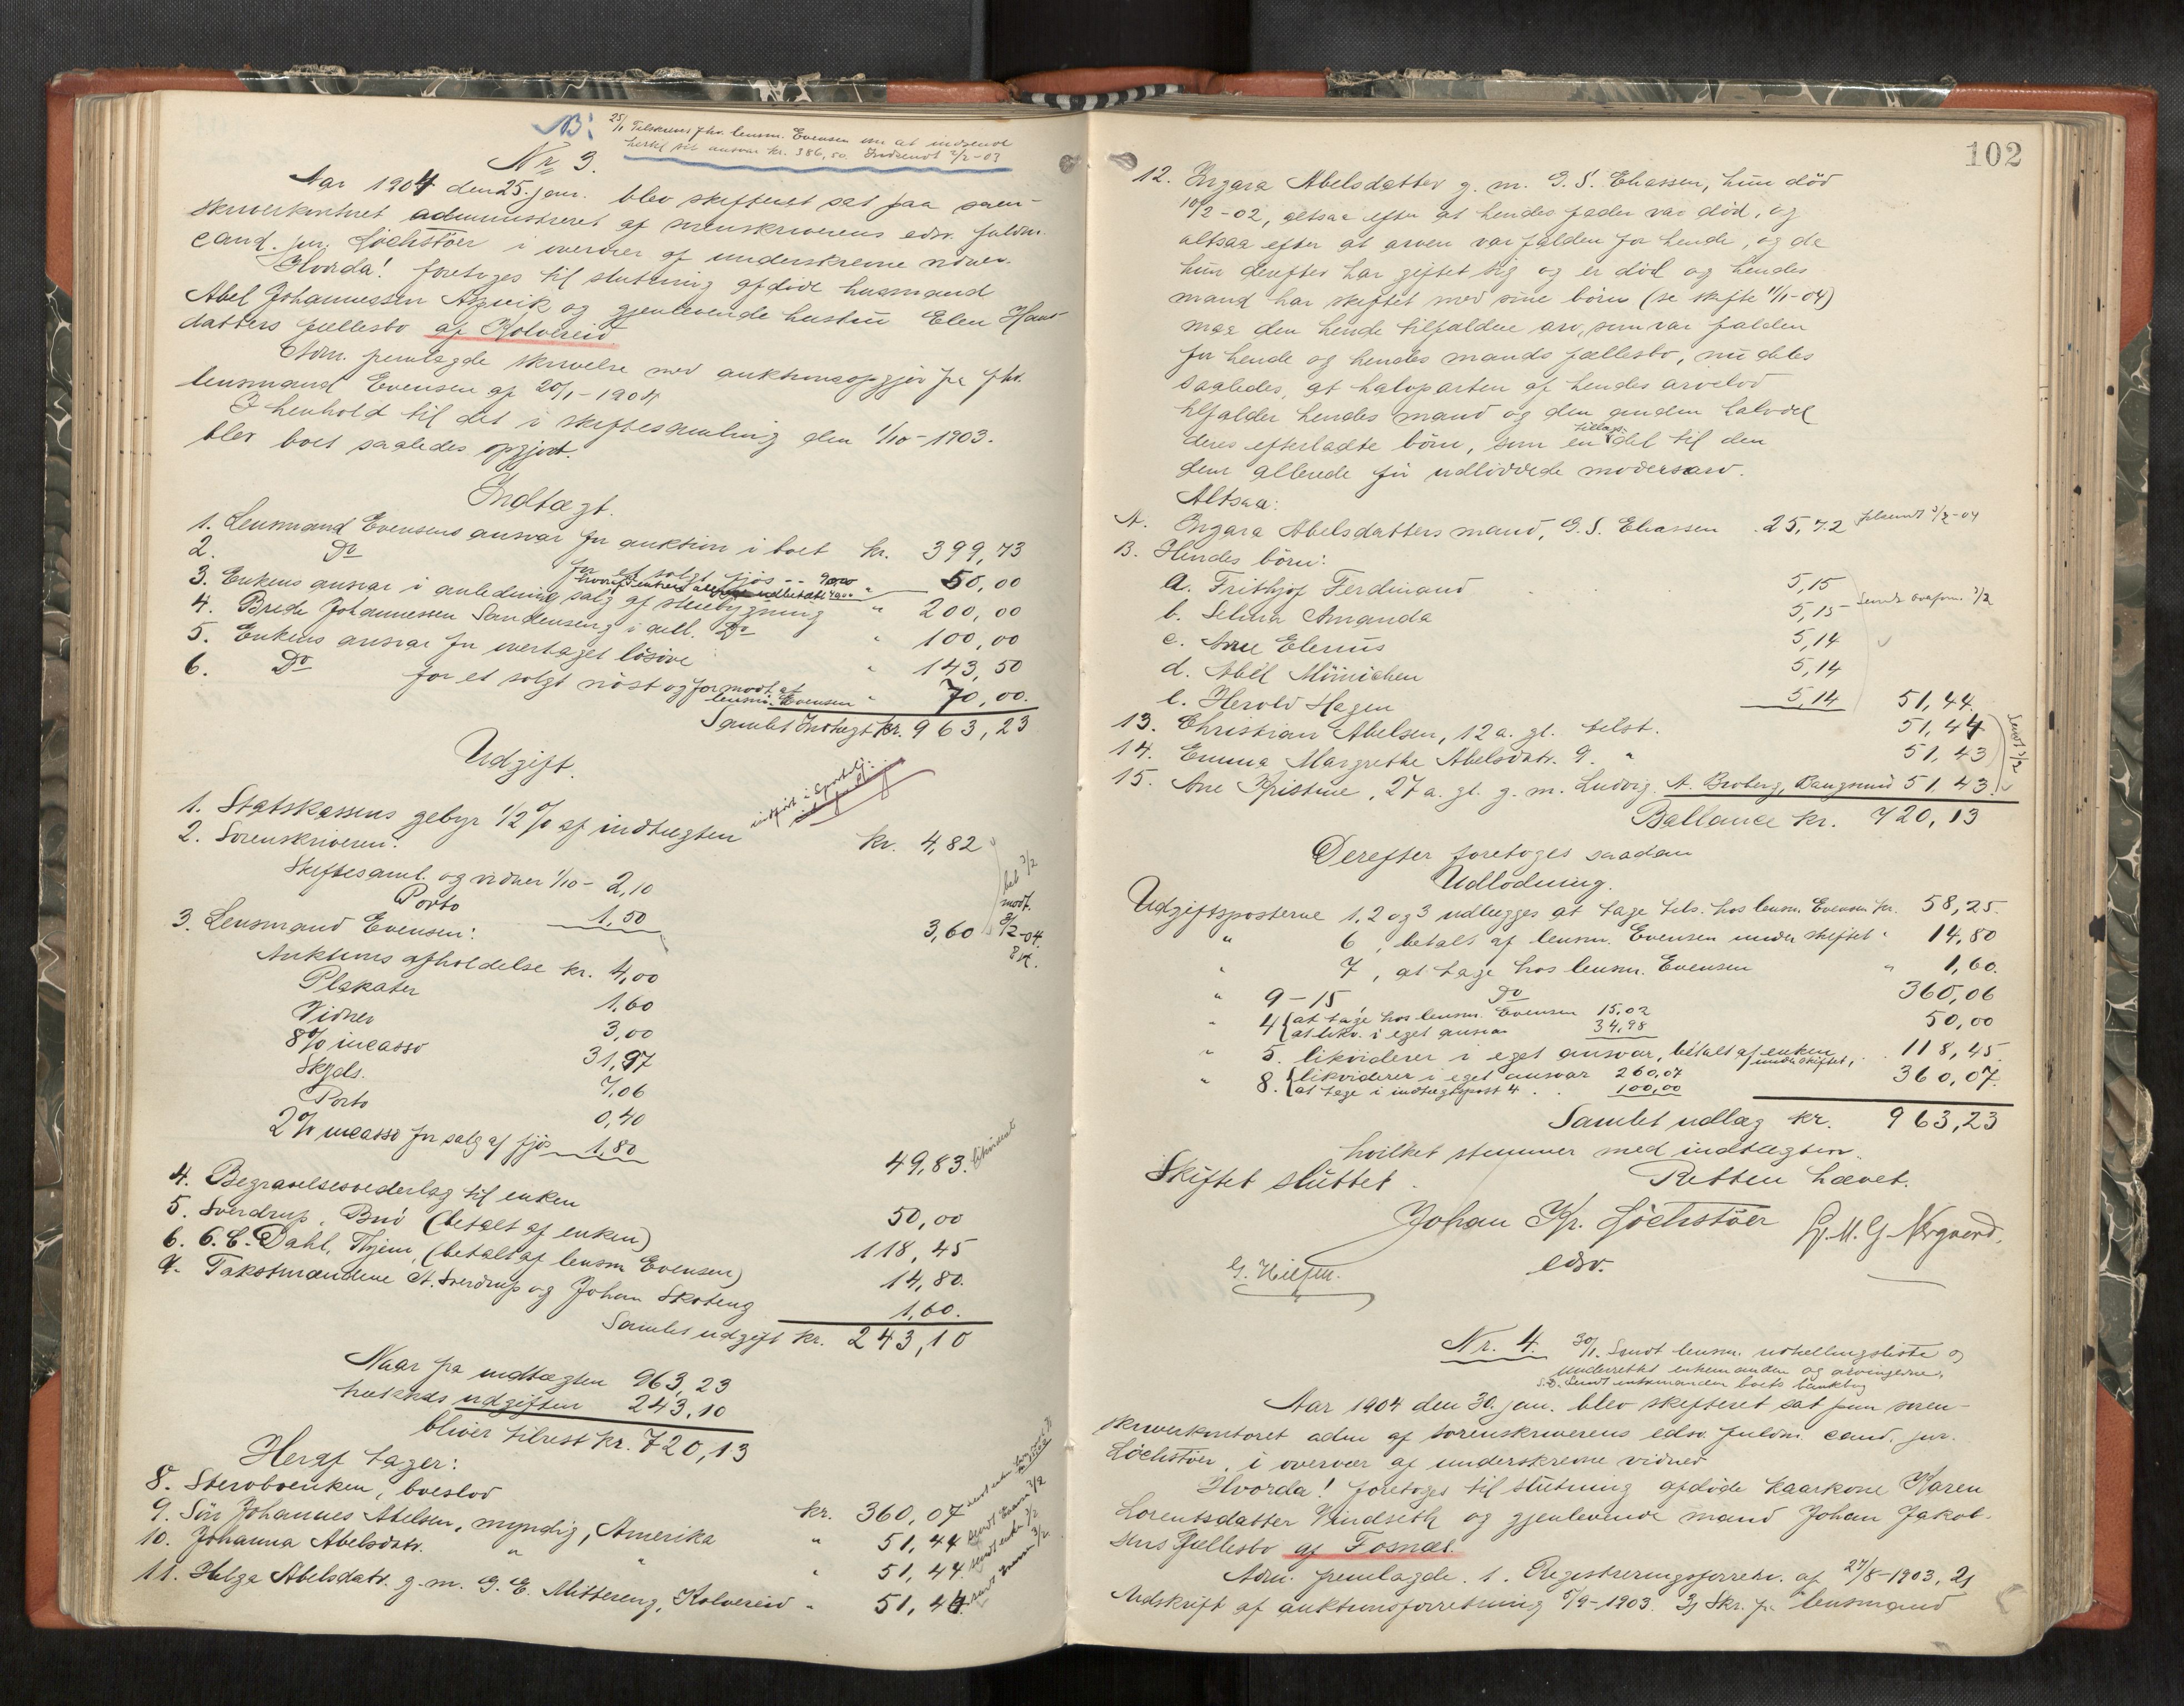 NB! 25/1 Tilskrevet fhv. lensm. Evensen om at indsende
hertil sit ansvar kr. 386,50. Indsendt 2/2-03
Nr 3.
Aar 1904 den 25. janr. blev skifteret sat paa soren-
skriverkontoret administreret af sorenskriverens edsv. fuldm.
cand. jur. Löchstöer i overvær af underskrevne vidner.
Hvorda! foretoges til slutning afdöde husmand
Abel Johannessen Aspvik og gjenlevende hustru Elen Hans-
datters fællesbo af Kolvereid.
Adm. fremlagde skrivelse med auktionsopgjör fra fhv.
lensmand Evensen af 20/1-1904
I henhold til det i skiftesamling den 1/10-1903.
blev boet saaledes opgjort.
Indtægt.
1. Lensmand Evensens ansvar for auktion i boet kr. 399,73
2. Do for et solgt fjös -- 90,00
hvoraf enken udbetalt 40,00 " 50,00
3. Enkens ansvar i anledning salg af stuebygning " 200,00
4. Brede Johannessen Sandenseng i anl. Do " 100,00
5. Enkens ansvar for overtaget lösöre " 143,50
6. Do for et solgt nöst og formodt. at
lensm. Evensen " 70,00.
Samlet Indtægt kr. 963,23
Udgift.
1. Statskassens gebyr 1/2 % af indtægten kr. 4,82
indfört i Sportelj.
2. Sorenskriveren:
Skiftesaml. og vidner 1/10 - 2,10
Porto 1,50 3,60
bet 3/2
modt.
8/2-04.
3. Lensmand Evensen:
Auktions afholdelse kr. 4,00
Plakater 1,60
Vidner 3,00
8% incasso 31,97
Skyds. 7,06
Porto 0,40
2% incasso for salg af fjös 1,80 49,83. likvideret
4. Begravelsesvederlag til enken 50,00
5. Sverdrup, Bud (betalt af enken) 118,45
6. C. C. Dahl, (betalt af lensm Evensen) 14,80.
7. Takstmændene A. Sverdrup og Johan Skoteng 1,60.
Samlet udgift kr. 243,10
Naar fra indtægten 963,23
trækkes udgiften 243,10
bliver tilrest kr. 720,13
Heraf tager:
8. Stervboenken, boeslod kr. 360,07
9. Sön Johannes Abelsen, myndig, Amerika " 51,44
10. Johanna Abelsdatr. " " " 51,44.
11. Helga Abelsdatr. g. m. G. E. Mittereng, Kolvereid " 51,44.
102
12. Ingara Abelsdatter g. m. G. S. Eliassen, hun död
10/2-02, altsaa efter at hendes fader var död, og
altsaa efter at arven var falden for hende, og da
hun derefter har giftet sig og er död og hendes
mand har skiftet med sine börn (se skifte 11/1-04)
maa den hende tilfaldne arv, som var falden
for hende og hendes mands fællesbo, nu deles
saaledes, at halvparten af hendes arvelod
tilfalder hendes mand og den anden halvdel
deres efterladte börn, som en tillægs-del til den
dem allerede før udlodde modersarv.
Altsaa:
A. Ingara Abelsdatters mand, G. S. Eliassen 25,72 tilsendt 3/2-04
B. Hendes börn:
a. Frithjof Ferdinand 5,15
b. Selma Amanda 5,15 - Sendt overform. 3/2
c. Arne Elenus 5,14
d. Abel Mönichen 5,14
e. Herold Hagen 5,14 51,44.
13. Christian Abelsen, 12 a. gl. selst. 51,44
14. Emma Margrethe Abelsdatr. 9. " 51,43
15. Ane Kristine, 27 a. gl. g. m. Ludvig A. Broberg, Bangsund 51,43.
Sendt 3/2
Ballance kr. 720,13
Derefter foretoges saadan
Udlodning.
Udgiftsposterne 1, 2 og 3 udlægges at tage tils. hos lensm. Evensen kr. 58,25.
" 6, betalt af lensm. Evensen under skiftet " 14,80
" 7, at tage hos lensm. Evensen " 1,60.
" 9-15 Do 360,06
" 4 { at tage hos lensm. Evensen 15,02
at likv. i eget ansvar 34,98 50,00
" 5. likviderer i eget ansvar, betalt af enken under skiftet, 118,45.
" 8. { likviderer i eget ansvar 260,07
at tage i indtægtspost 4 . . 100,00 360,07.
Samlet udlæg kr. 963,23
hvilket stemmer med indtægten.
Skiftet sluttet. Retten hævet.
Johan Kr. Löchstöer
edsv.
Nr. 4. 30/1. Sendt lensm. udtellingsliste og
underrettet enkemanden og arvingerne.
S.D. Sendt enkemanden boets bankbog
Aar 1904 den 30. jan. blev skifteret sat paa soren-
skriverkontoret adm af sorenskriverens edsv. fuldm. cand. jur.
Löchstöer, i overvær af underskrevne vidner
Hvorda! foretoges til slutning afdöde kaarkone Karen
Lorentsdatter Vindseth og gjenlevende mand Johan Jakob-
sens fællesbo af Fosnæs.
Adm. fremlagde. 1. Registreringsforretn. af 27/8-1903, 2)
Udskrift af auktionsforretning 5/9-1903. 3) Skr. fra lensmand